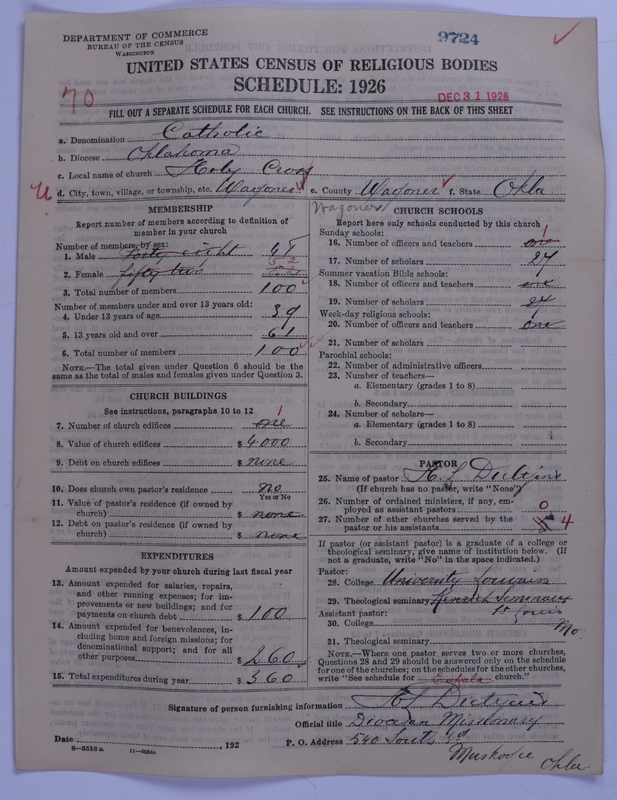 DEPARTMENT OF COMMERCE
BUREAU OF THE CENSUS
WASHINGTON
9724
UNITED STATES CENSUS OF RELIGIOUS BODIES
SCHEDULE: 1926
70
DEC 31 1926
FILL OUT A SEPARATE SCHEDULE FOR EACH CHURCH. SEE INSTRUCTIONS ON THE BACK OF THIS SHEET
a. Denomination Catholic
b. Diocese Oklahoma
c. Local name of church Holy Cross
d. City, town, village, or township, etc. Wagoner e. County Wagoner f. State Okla
Wagoner
MEMBERSHIP
Report number of members according to definition of member in your church
Number of members, by sex:
1. Male Forty eight 48
2. Female Fifty two 52
3. Total number of members 100
Number of members under and over 13 years old:
4. Under 13 years of age 39
5. 13 years old and over 61
6. Total number of members 100
NOTE.—The total given under Question 6 should be same as the total of males and females given under Question 3.
CHURCH BUILDINGS
See instructions, paragraphs 10 to 12
7. Number of church edifices one 1
8. Value of church edifices $ 4000
9. Debt on church edifices $ none
10. Does church own pastor's residence no
Yes or No
11. Value of pastor's residence (if owned by church) $ none
12. Debt on pastor's residence (if owned by church) $ none
EXPENDITURES
Amount expended by your church during last fiscal year
13. Amount expended for salaries, repairs, and other running expenses; for improvements or new buildings; and for payments on church debt $ 100
14. Amount expended for benevolences, including home and foreign missions; for denominational support; and for all other purposes $ 260
15. Total expenditures during year $ 360
CHURCH SCHOOLS
Report here only schools conducted by this church
Sunday schools:
16. Number of officers and teachers one 1
17. Number of scholars 24
Summer vacation Bible schools:
18. Number of officers and teachers one
19. Number of scholars 24
Week-day religious schools:
20. Number of officers and teachers one
21. Number of scholars
Parochial schools:
22. Number of administrative officers
23. Number of teachers—
a. Elementary (grades 1 to 8)
b. Secondary
24. Number of scholars—
a. Elementary (grades 1 to 8)
b. Secondary
PASTOR
25. Name of pastor
(If church has no pastor, write "None")
26. Number of ordained ministers, if any, employed as assistant pastors 0
27. Number of other churches served by the pastor or his assistants 4
If pastor (or assistant pastor) is a graduate of a college or theological seminary, give name of institution below. (If not a graduate, write "No" in the space indicated.)
Pastor:
28. College University Louvain
29. Theological seminary Kenrick Seminary
Assistant pastor: St Louis
30. College Mo
31. Theological seminary
NOTE.—Where one pastor serves two or more churches, Questions 28 and 29 should be answered only on the schedule for one of the churches; on the schedules for the other churches, write "See schedule for Eufala church."
Signature of person furnishing information
Official title Diocesan Missionary
Date , 192
P. O. Address 540 South 3d
Muskogee Okla
8—5518 a